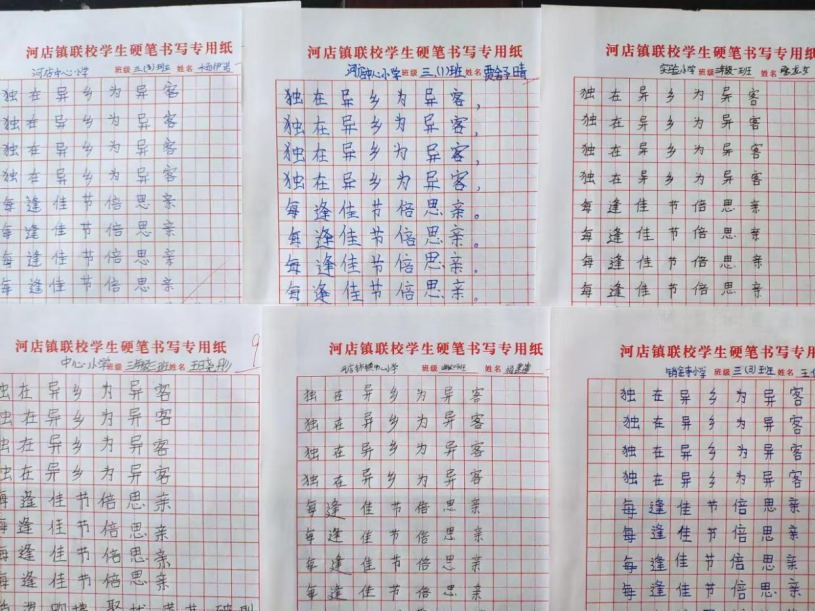 河店镇联校学生硬笔书写专用纸
河店中心小学 班级 三(3)班 姓名
独在异乡为异客
独在异乡为异客
独在异乡为异客
独在异乡为异客
每逢佳节倍思亲
每逢佳节倍思亲
每逢佳节倍思亲
每逢佳节倍思亲
河店镇联校学生硬笔书写专用纸
河店中心小学 班级 三.(1)班 姓名
独在异乡为异客,
独在异乡为异客,
独在异乡为异客,
独在异乡为异客,
每逢佳节倍思亲。
每逢佳节倍思亲。
每逢佳节倍思亲。
每逢佳节倍思亲。
河店镇联校学生硬笔书写专用
实验小学 班级 班 姓名
独在异乡为异客
独在异乡为异客
独在异乡为异客
独在异乡为异客
每逢佳节倍思亲
每逢佳节倍思亲
每逢佳节倍思亲
每逢佳节倍思亲
9
河店镇联校学生硬笔书写专用纸
中心小学 班级 班 姓名
在异乡为异客
在异乡为异客
在异乡为异客
在异乡为异客
每逢佳节倍思亲
每逢佳节倍思亲
每逢佳节倍思亲
每逢佳节倍思亲
河店镇联校学生硬笔书写专用纸
中心小学 班级 班 姓名
独在异乡为异客
独在异乡为异客
独在异乡为异客
独在异乡为异客
每逢佳节倍思亲
每逢佳节倍思亲
每逢佳节倍思亲
每逢佳节倍思亲
河店镇联校学生硬笔书写专用
小学 班级 三(3)班 姓名 王
独在异乡为异客
独在异乡为异客
独在异乡为异客
独在异乡为异客
每逢佳节倍思亲
每逢佳节倍思亲
每逢佳节倍思亲
每逢佳节倍思亲